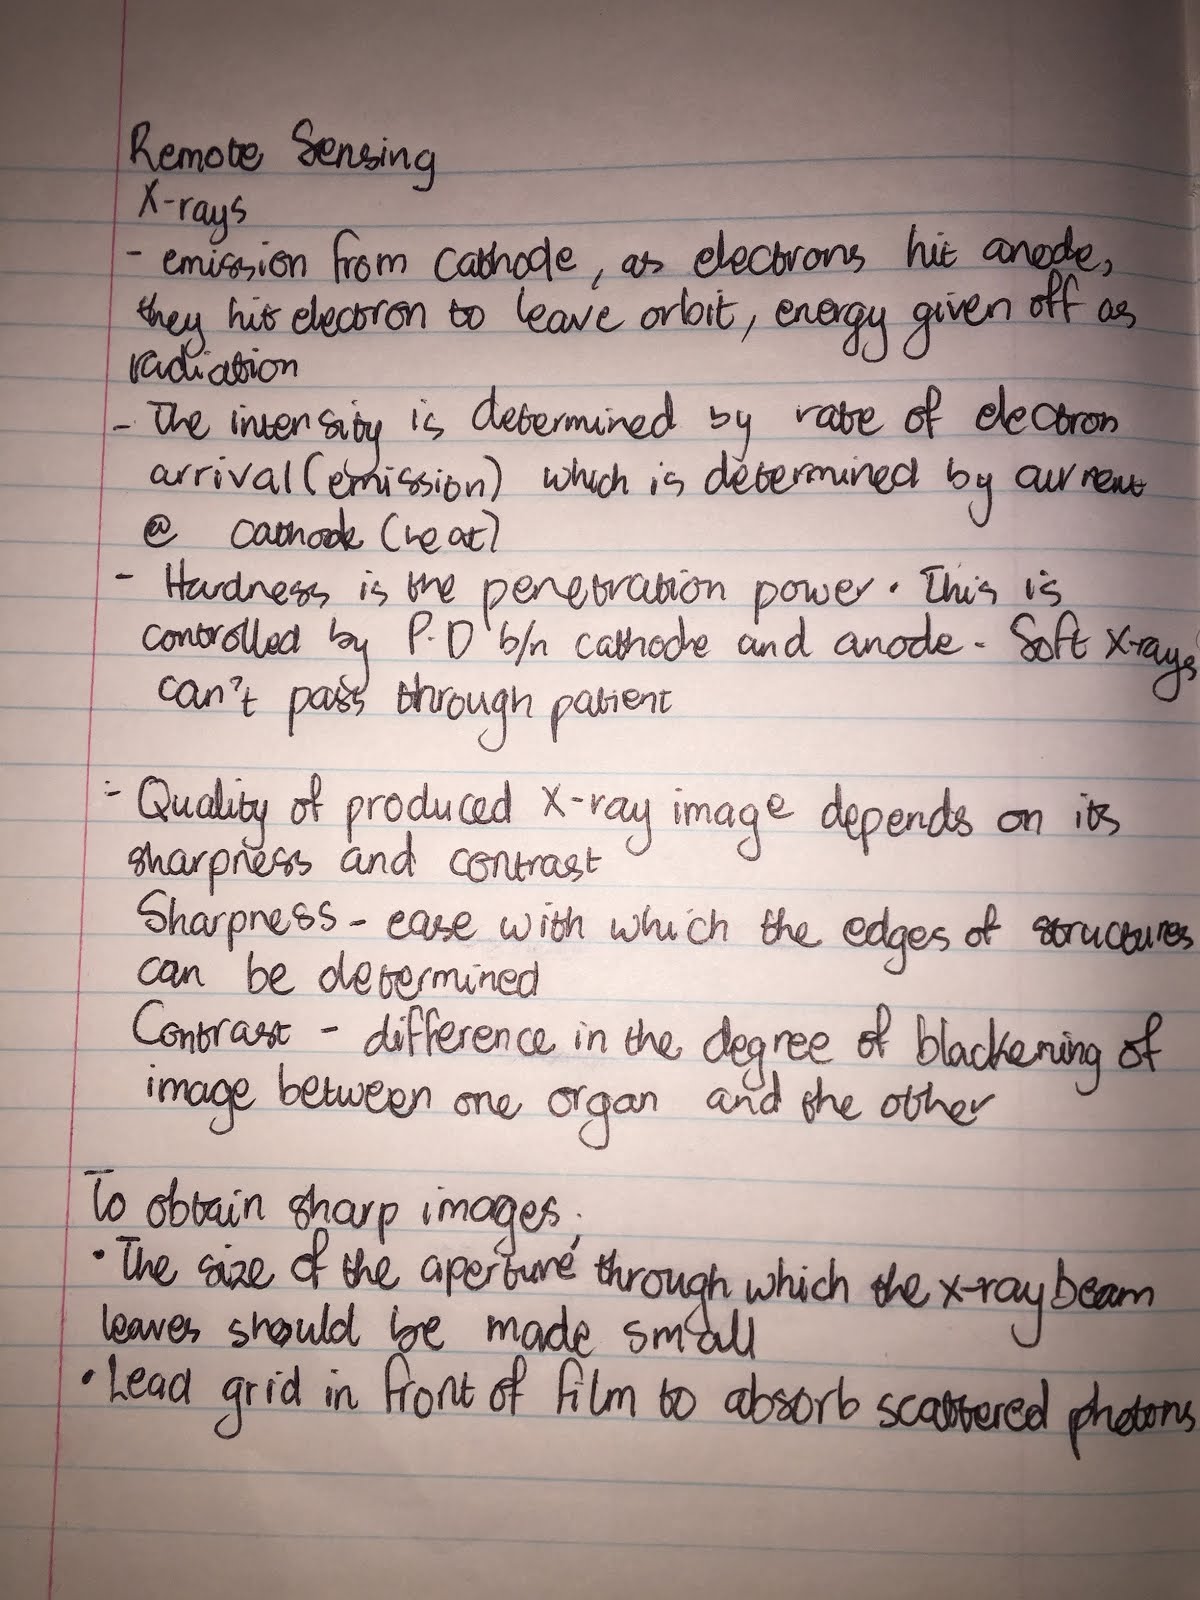 Remote Sensing
X-rays
- emission from cathode, as electrons hit anode,
they hit electron to leave orbit, energy given off as
radiation
- The intensity is determined by rate of electron
arrival (emission) which is determined by current
@ cathode (heat)
- Hardness is the penetration power. This is
controlled by P.D b/n cathode and anode - Soft X-rays
can't pass through patient
- Quality of produced X-ray image depends on its
sharpness and contrast
Sharpness - ease with which the edges of structures
can be determined
Contrast - difference in the degree of blackening of
image between one organ and the other
To obtain sharp images,
• The size of the aperture through which the x-ray beam
leaves should be made small
• Lead grid in front of film to absorb scattered photons